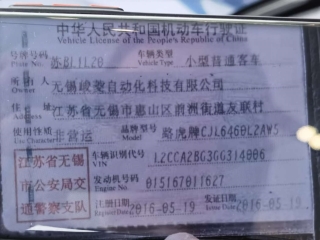 中华人民共和国机动车行驶证
Vehicle License of the People's Republic of China
号牌号码 Plate No. 苏B1.11.20 车辆类型 Vehicle Type 小型普通客车
所有人 Owner 无锡峻菱自动化科技有限公司
住址 Address 江苏省无锡市惠山区前洲街道友联村
使用性质 Use Character 非营运 品牌型号 Model 路虎牌CJL6460L2AWS
江苏省无锡
市公安局交
通警察支队
车辆识别代号 VIN L2CCA2BG3GG314006
发动机号码 Engine No. 015167011627
注册日期 Register Date 2016-05-19 发证日期 Issue Date 2016-05-19